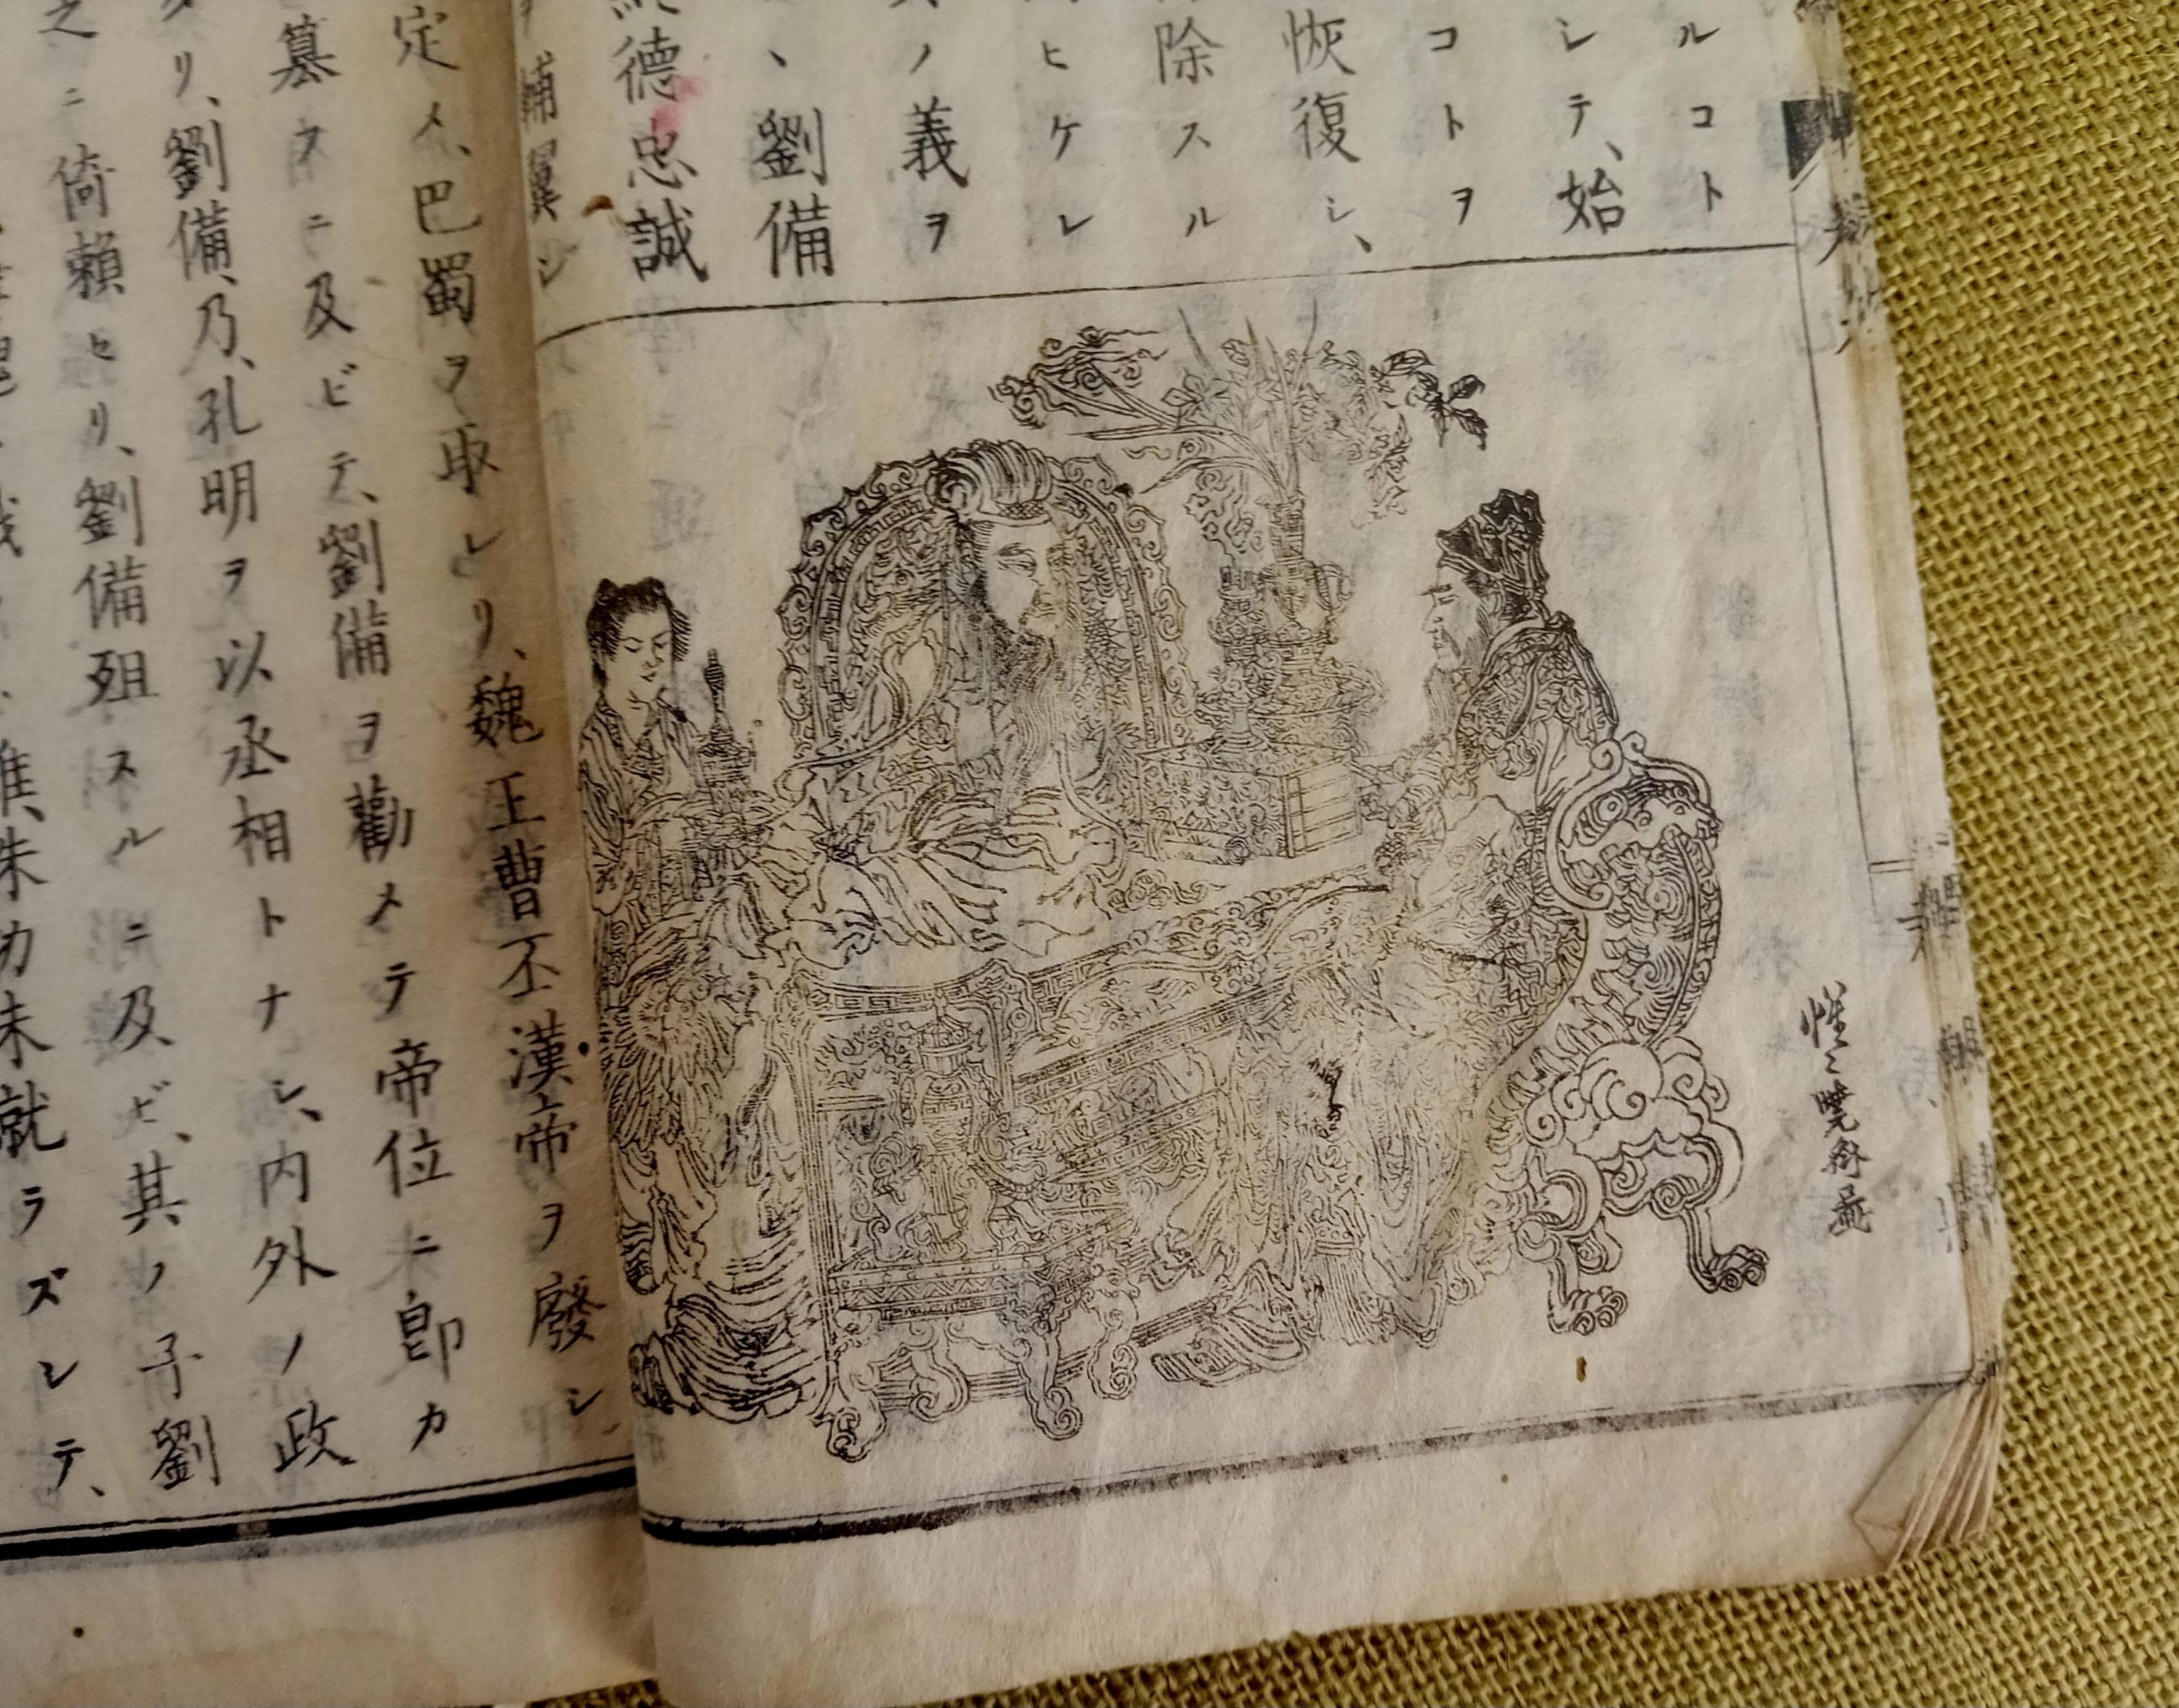 ルコト
シテ、始
コトヲ
恢復シ、
除スル
ヒケレ
ノ義ヲ
、劉備
德忠誠
輔翼シ
惺〻曉斎畫
定メ、巴蜀ヲ取レリ、魏王曹丕漢帝ヲ廢シ
篡フニ及ビテ、劉備ヲ勸メテ帝位ニ卽カ
リ、劉備、乃、孔明ヲ以丞相トナシ、内外ノ政
之ニ倚賴セリ、劉備殂スルニ及ビ、其ノ子劉
就ラズシテ、